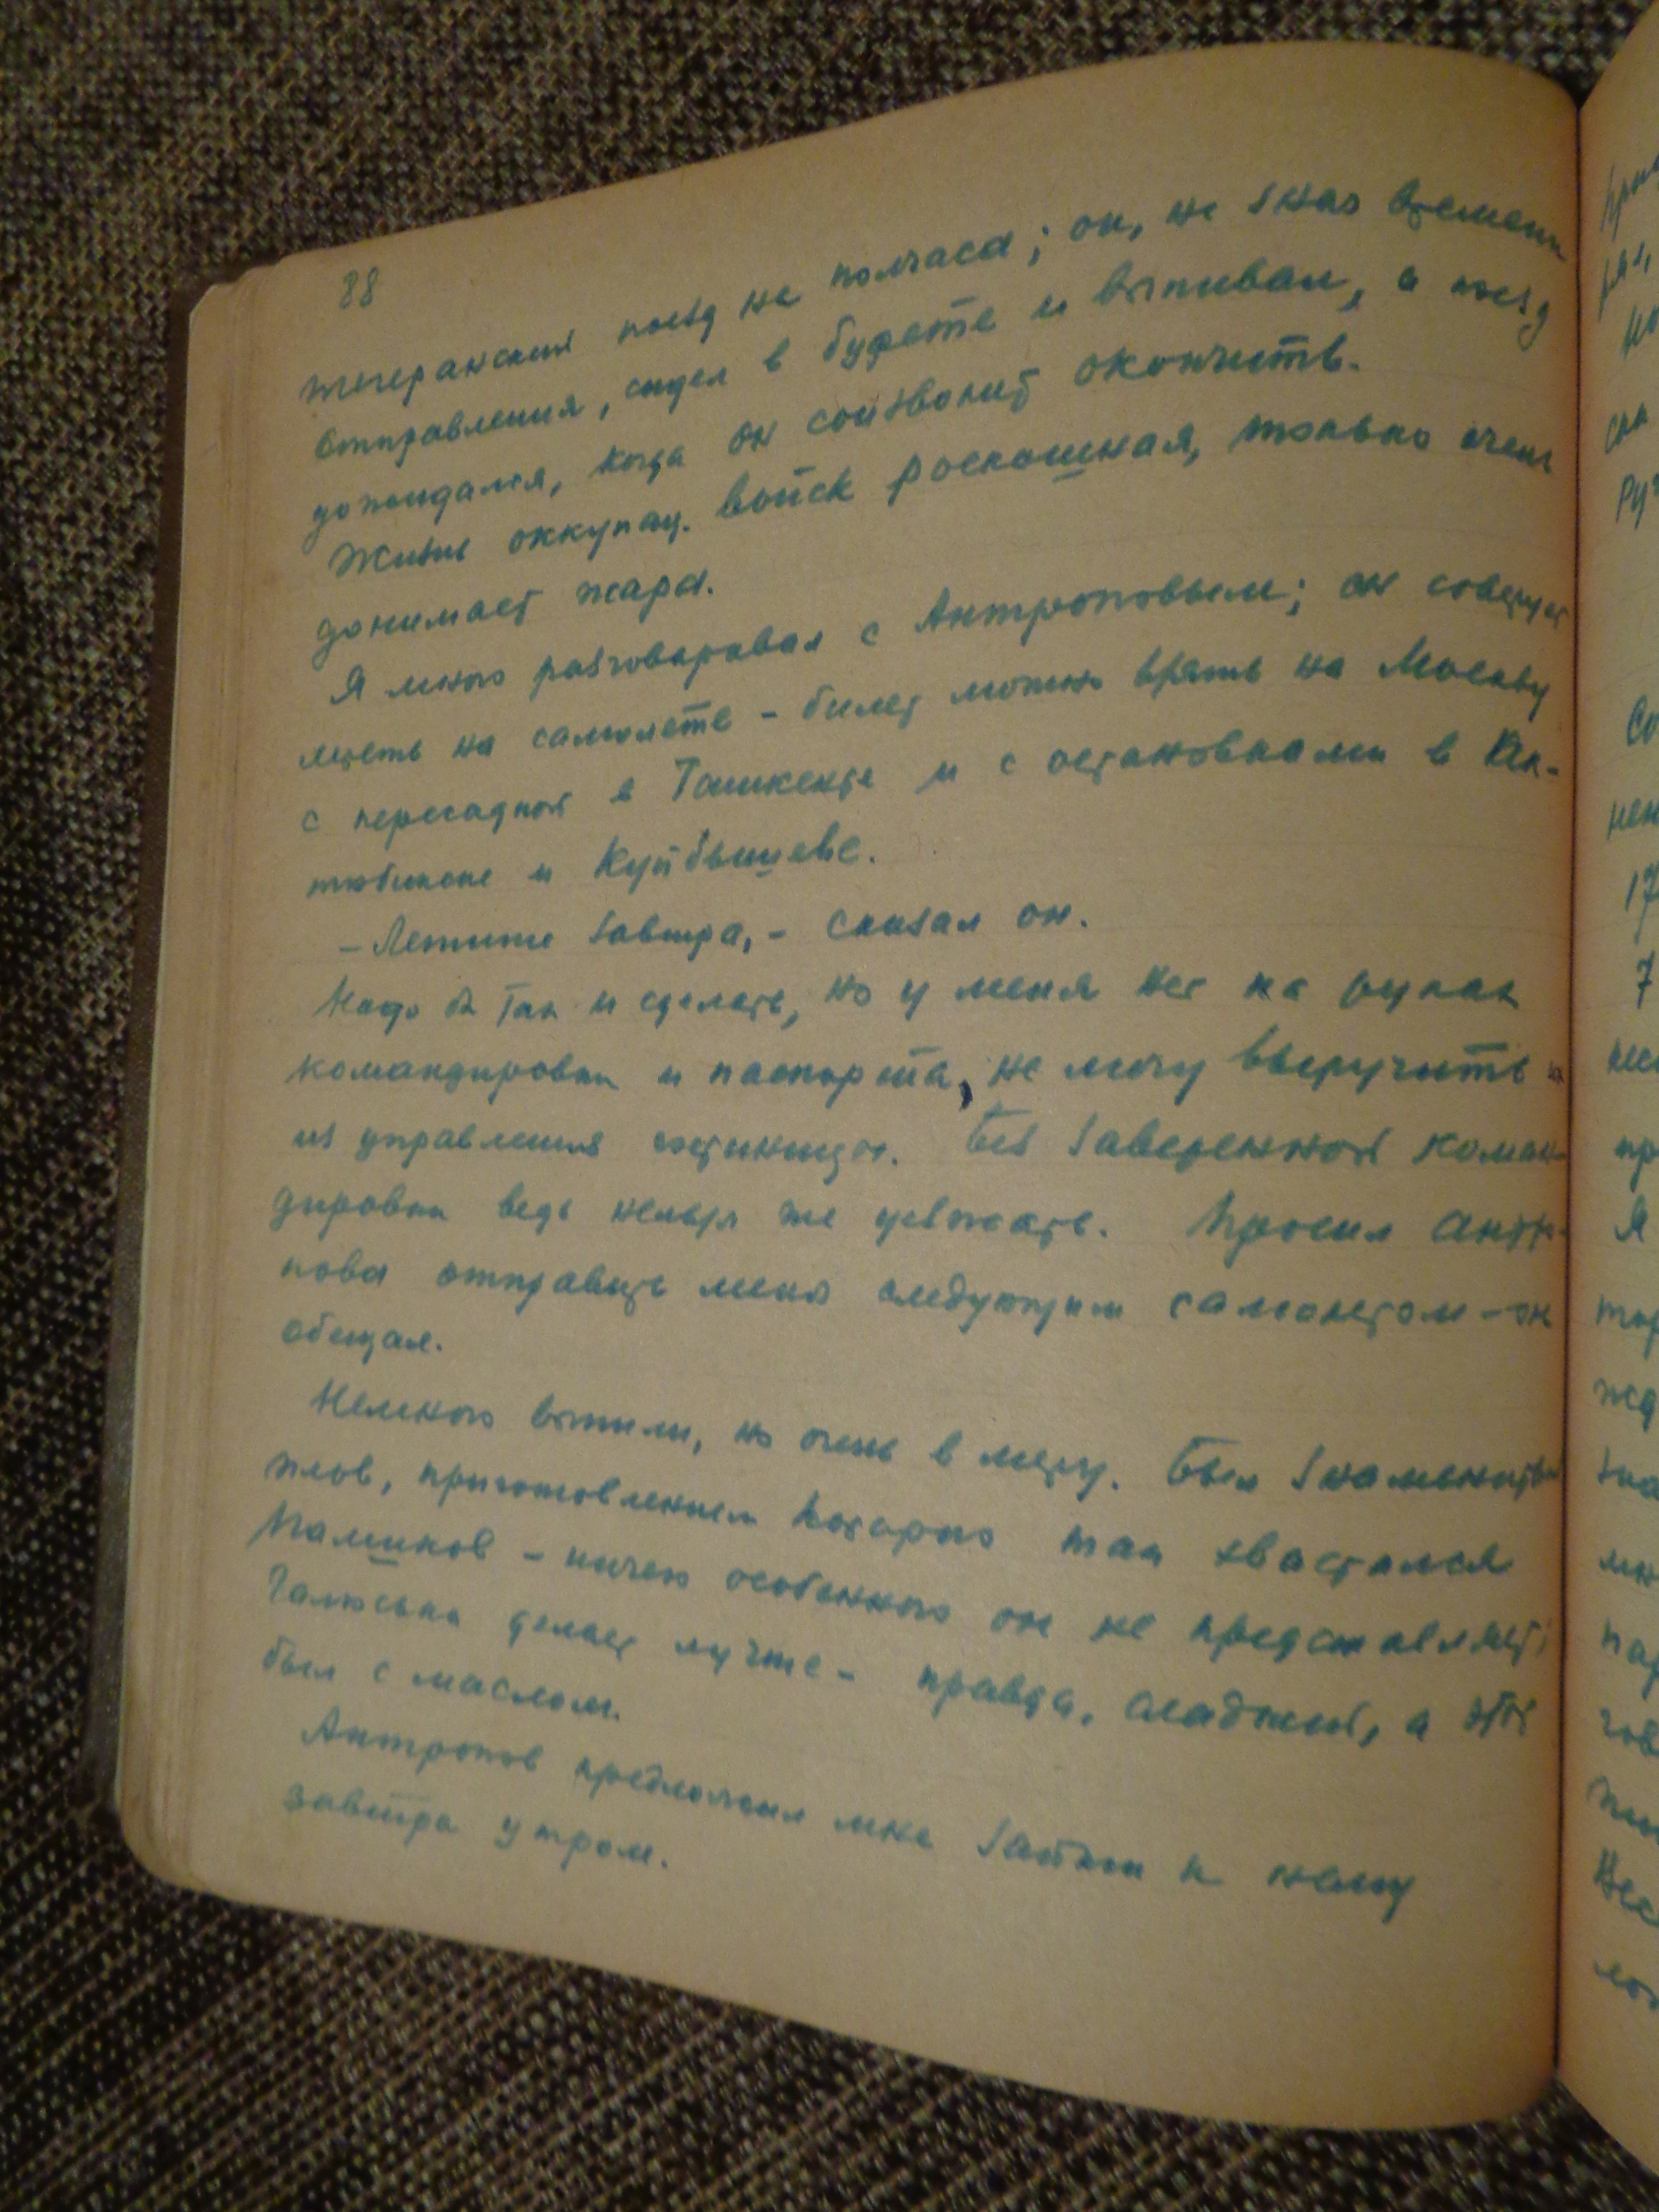 88
тегеранский поезд на полчаса; он, не зная времени
отправления, сидел в буфете и выпивал, а поезд
дожидался, когда он соизволит окончить.
Жизнь оккупац. войск роскошная, только очень
донимает жара.
Я много разговаривал с Антроповым; он советует
лететь на самолете - билет можно взять на Москву
с пересадкой в Ташкенте и с остановками в Ак-
тюбинске и Куйбышеве.
- Летите завтра, - сказал он.
Надо б так и сделать, но у меня нет на руках
командировки и паспорта, не могу выручить их
из управления гостиницы. Без заверенной коман-
дировки ведь нельзя же уезжать. Просил Антро-
пова отправить меня следующим самолетом - он
обещал.
Немного выпили, но очень в меру. Был знаменитый
плов, приготовлением которого так хвастался
Пашков - ничего особенного он не представляет;
Галюська делает лучше - правда, сладкий, а этот
был с маслом.
Антропов предложил мне зайти к нему
завтра утром.